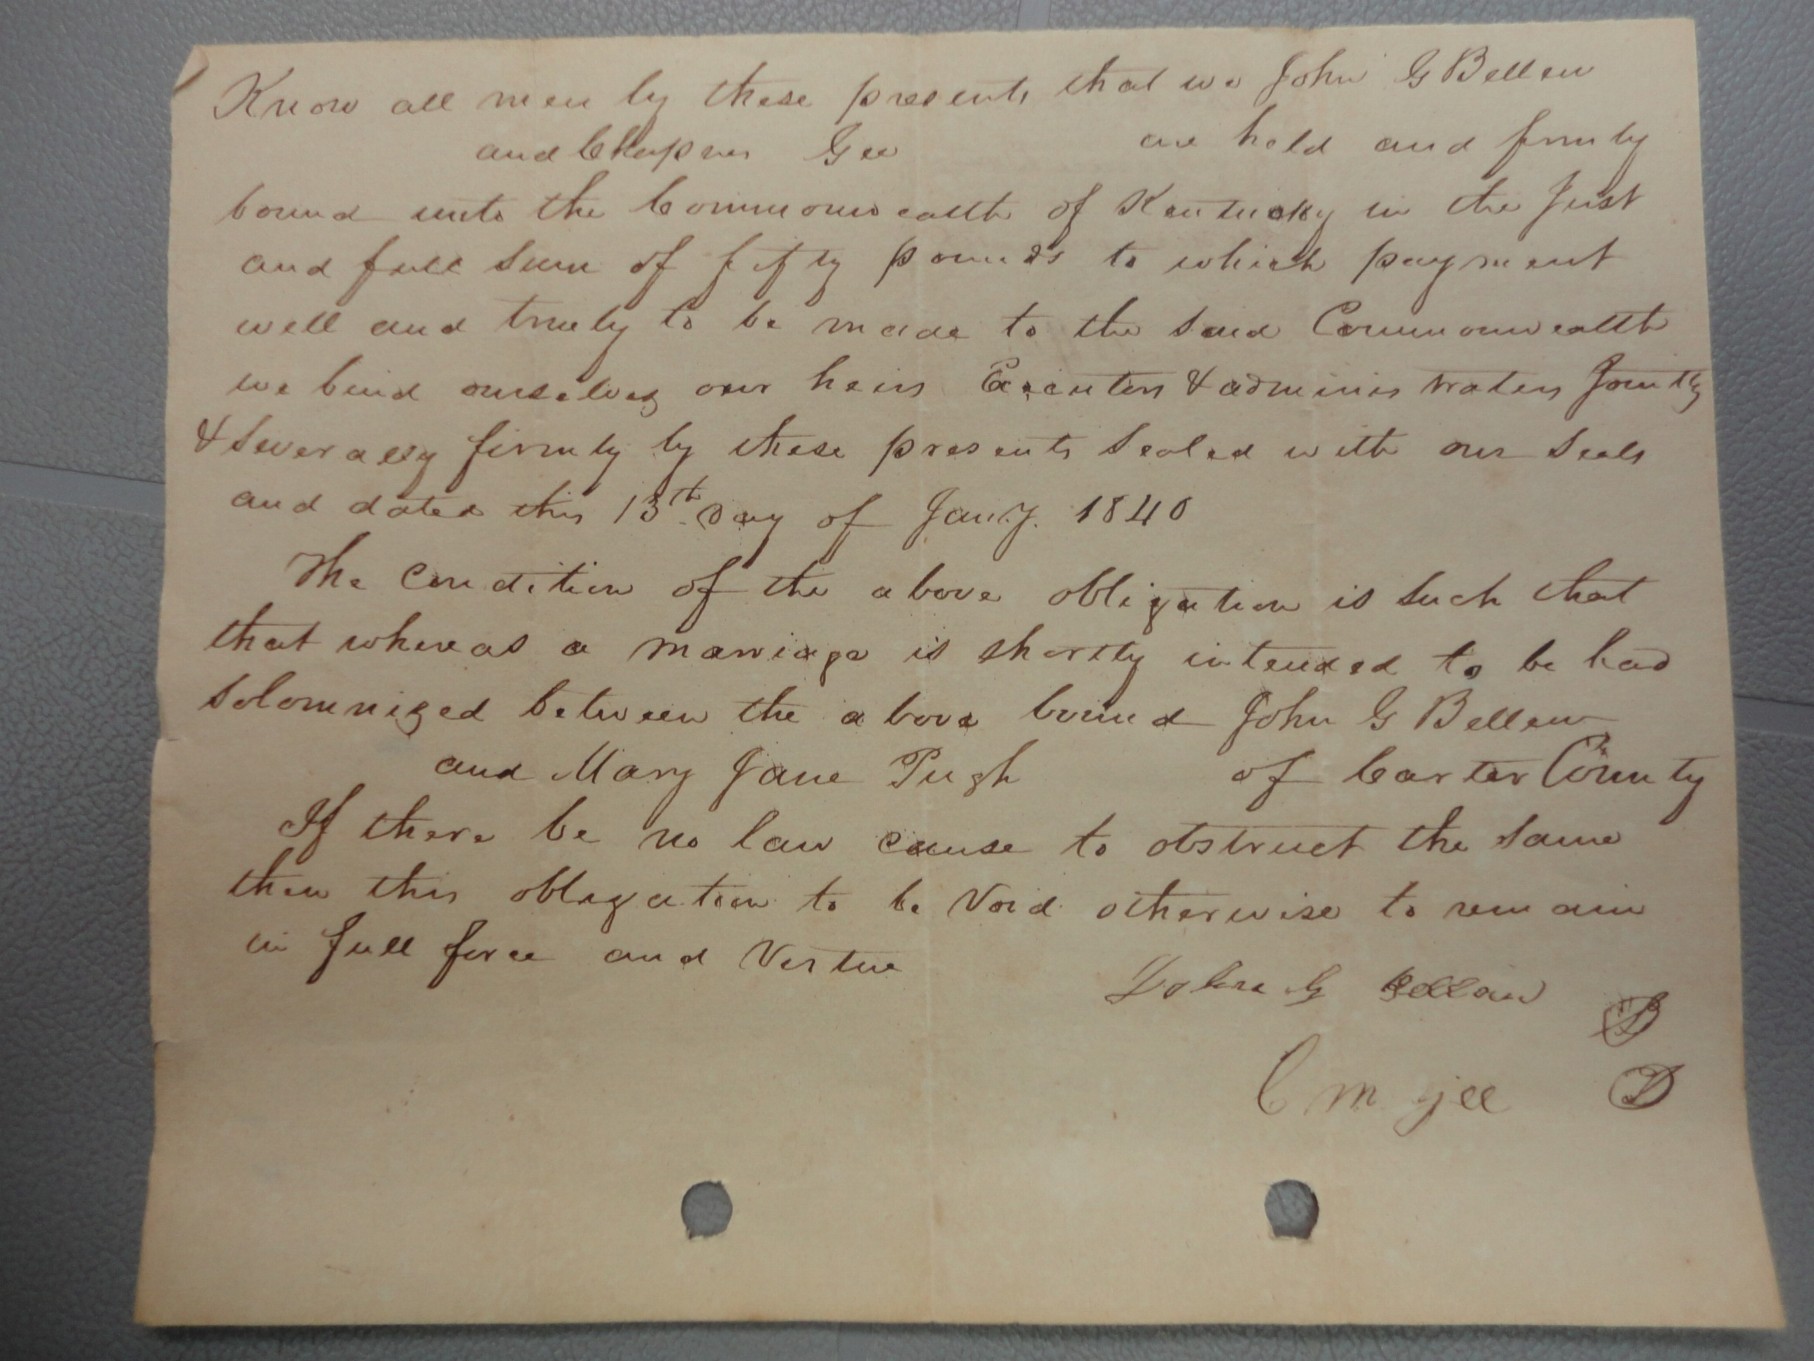 Know all men by these presents that we John G Bellew
and Gee are held and firmly
bound unto the Commonwealth of Kentucky in the Just
and full sum of fifty pounds to which payment
well and truely to be made to the said Commonwealth
we bind ourselves our heirs Executors & administrators Jointly
& severally firmly by these presents sealed with our seals
and dated this 13th Day of Jany. 1840
The condition of the above obligation is such that
that whereas a marriage is shortly intended to be had
solomnized between the above bound John G Bellew
and Mary Jane Pugh of Carter County
If there be no law cause to obstruct the same
then this obligation to be Void otherwise to remain
in full force and Vertue
John G Bellew
C m gee